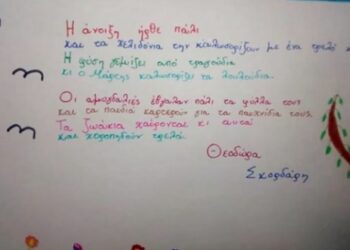 Η άνοιξη ήρθε πάλι
και τα χελιδόνια την καλωσορίζουν με ένα τρελό
Η φύση γεμίζει από τραγούδια
κι ο Μάρτης καλωσορίζει τα λουλούδια.
Οι αμυγδαλιές έβγαλαν πάλι τα φύλλα τους
και τα παιδιά καρτερούν για τα παιχνίδια τους.
Τα ζωάκια χαίρονται κι αυτά
και χοροπηδούν τρελά.
Θεοδώρα
Σκορδάρη